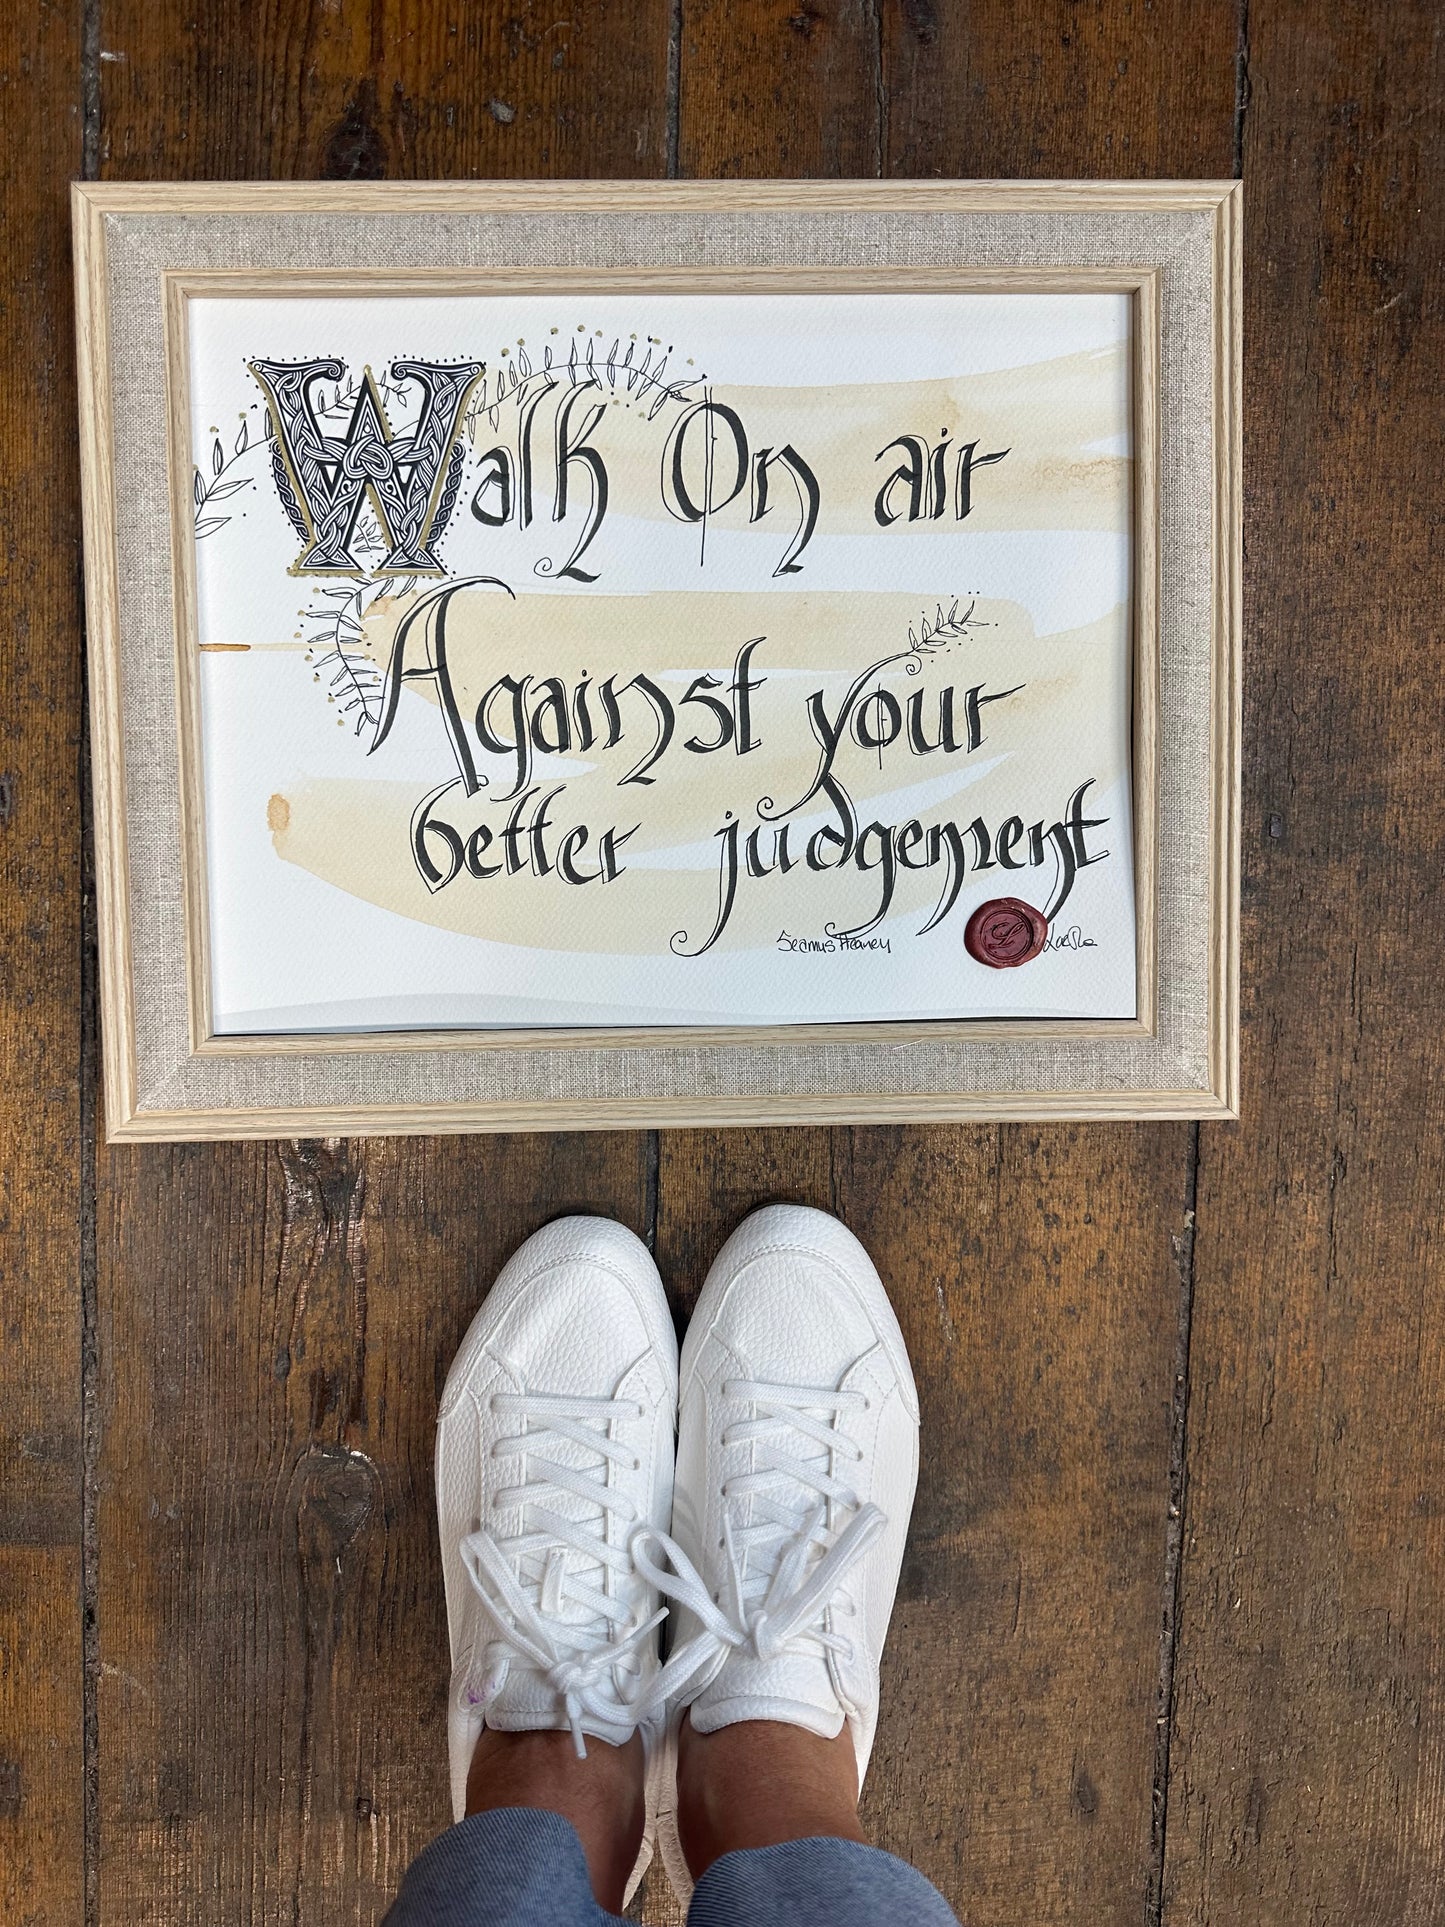 Walk On air
Against your
better judgement
Seamus Heaney
L